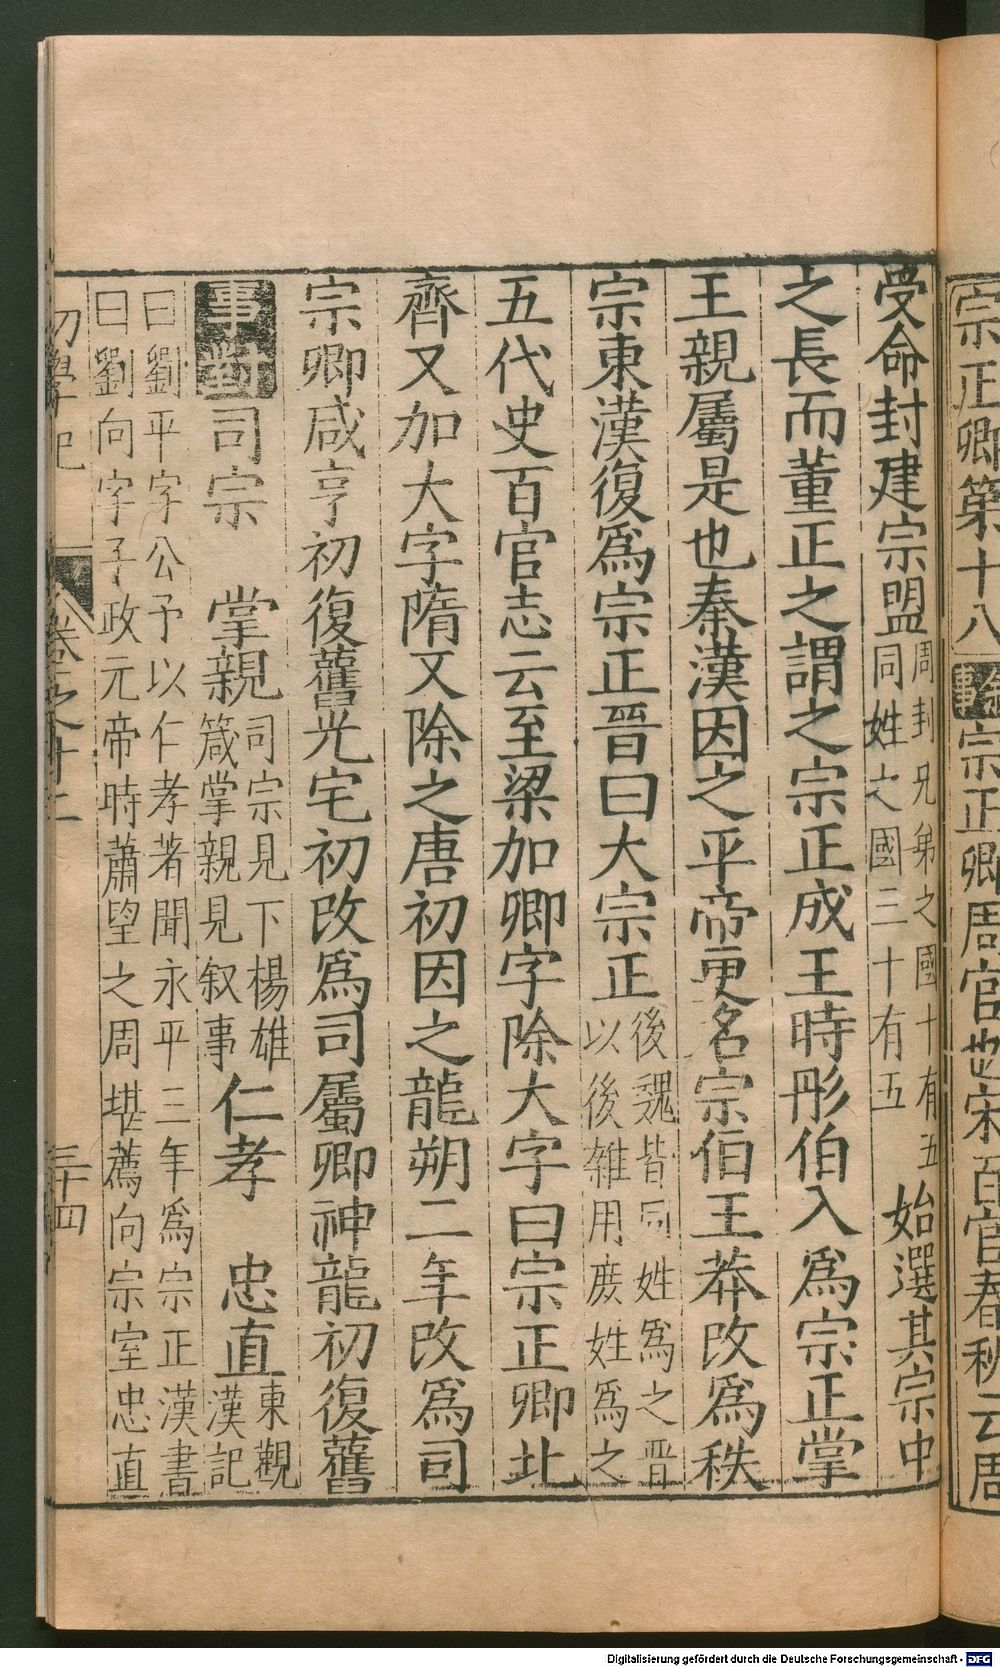 宗正卿第十八 叙事 宗正卿周官也宋百官春秋云周
受命封建宗盟 周封兄弟之國十有五 同姓之國三十有五 始選其宗中
之長而董正之謂之宗正成王時彤伯入爲宗正掌
王親屬是也秦漢因之平帝更名宗伯王莽改爲秩
宗東漢復爲宗正晉曰大宗正 後魏皆同姓爲之晋 以後雜用庶姓爲之
五代史百官志云至梁加卿字除大字曰宗正卿北
齊又加大字隋又除之唐初因之龍朔二年改爲司
宗卿咸亨初復舊光宅初改爲司屬卿神龍初復舊
事對 司宗 掌親 司宗見下楊雄 箴掌親見叙事 仁孝 忠直 東觀 漢記
曰劉平字公予以仁孝著聞永平三年爲宗正漢書
曰劉向字子政元帝時蕭望之周堪薦向宗室忠直
初學記 卷之十二 三十四
Digitalisierung gefördert durch die Deutsche Forschungsgemeinschaft - DFG